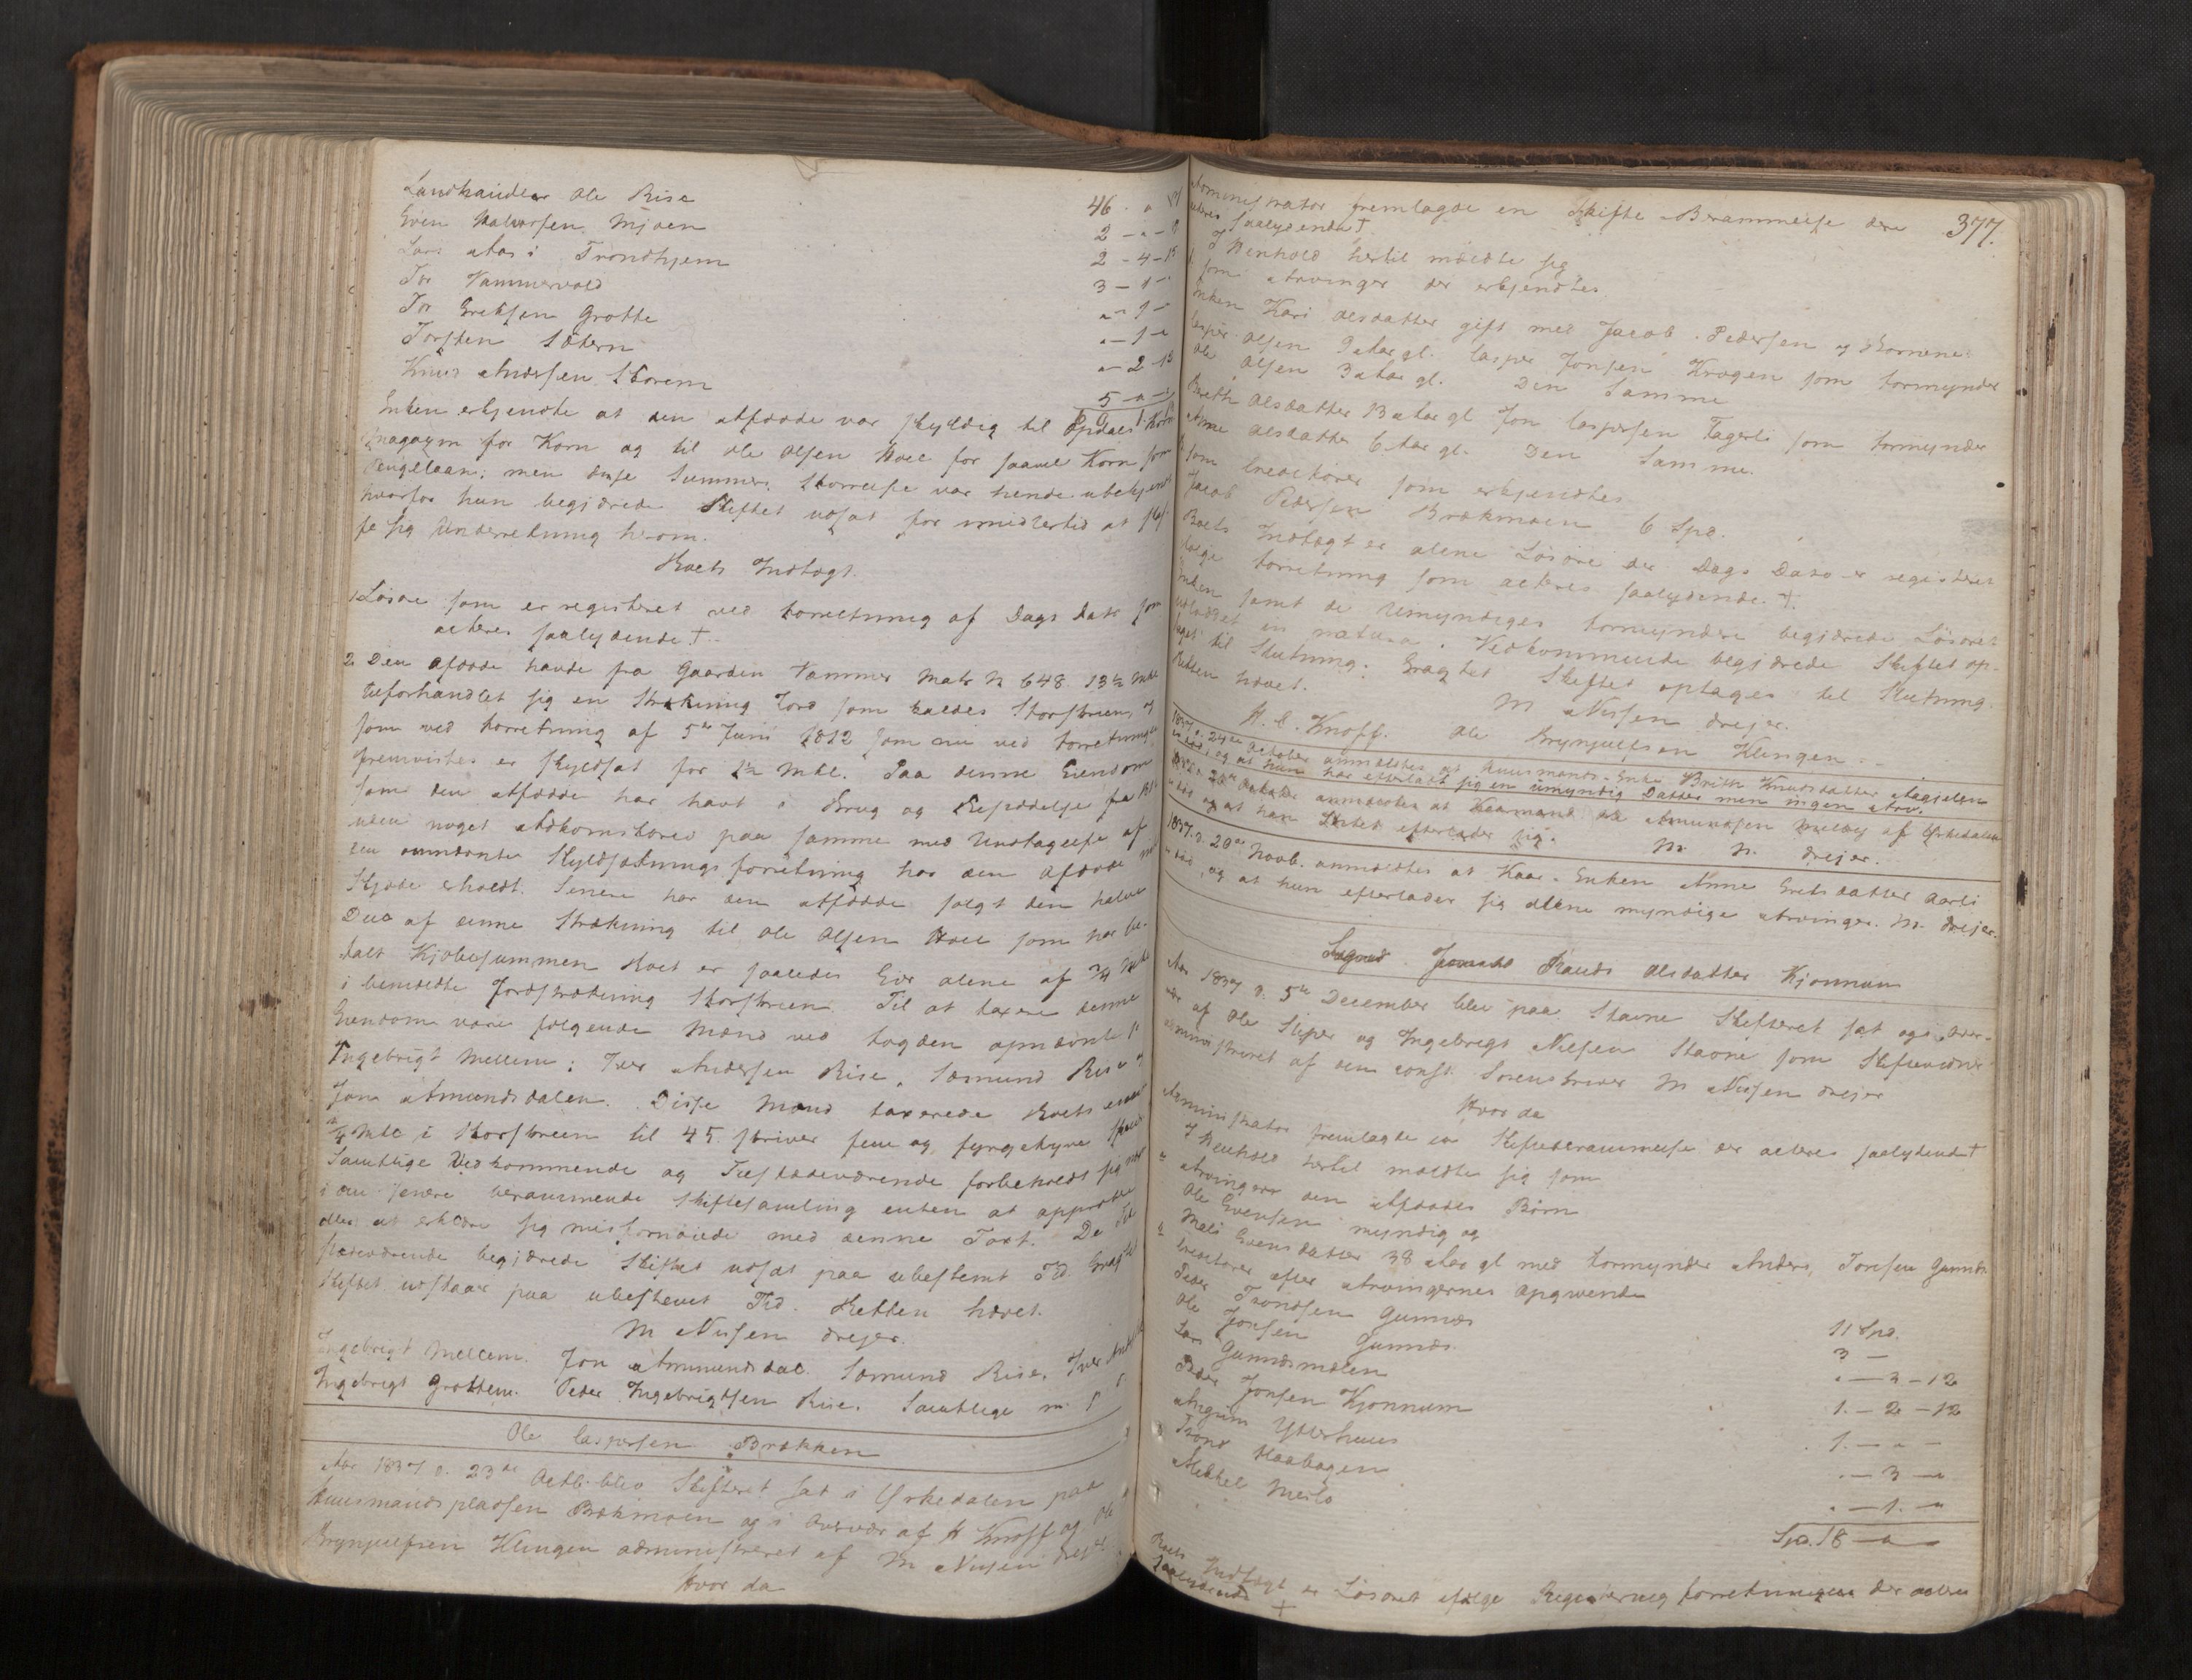 Landhandler Ole Rise 46 -
Even Halvorsen Mjøen 2 - " - 8
Lars Aas i Trondhjem 2 - 4 - 15
Tor Vammervold 3 - 1 -
Tor Erichsen Grøtte " - 1 -
Torsten Sætern " - 1 - "
Knud Andersen Storem " - 2 - 13
5 - " -
Enken erkjendte at den Afdøde var skyldig til Opdals Korn
magazin for Korn og til Ole Olsen Hoel for saavel Korn som
Pengelaan; men disse Summers Størrelse var hende ubekjendt
hvorfor hun begjærede Skiftet udsat for imidlertid at
sig Underretning herom.
Boets Indtægt.
1 Løsøre som er registeret ved Forretning af Dags Dato som
acteres saalydende †
2 Den Afdøde havde fra Gaarden Vammer Matr N 648 13½ Mkl
tilforhandlet sig en Strækning Jord som kaldes Storstuen,
som ved Forretning af 5te Juni 1812 som nu ved Forretningen
fremvistes er skyldsat for 1½ Mkl. Paa denne Eiendom
som den Afdøde har havt i Brug og Besiddelse
uden noget Adkomstbrev paa samme med Undtagelse af
den omnævnte Skyldsætningsforretning har den Afdøde
Skjøde erholdt. Senere har den Afdøde solgt den halve
Deel af denne Strækning til Ole Olsen Hoel som har be-
talt Kjøbesummen Boet er saaledes Eier alene af ¾ Mkl
i bemeldte Jordstrækning Storstuen. Til at taxere denne
Eiendom vare følgende Mænd ved Fogden opnævnte:
Ingebrigt Mellem; Iver Andersen Rise, Sæmund Rise
Jon Amundsdalen. Disse Mænd taxerede Boets
¾ Mkl i Storstuen til 45 skriver fem og fyrgetyve
Samtlige Vedkommende og Tilstædeværende forbeholdt sig
i en senere berammende Skiftesamling enten at approbere
eller at erklære sig misfornøiede med denne Taxt. De Til
stædeværende begjærede Skiftet udsat paa ubestemt Tid. Eragtet
Skiftet udstaar paa ubestemt Tid. Retten hævet.
M Nissen Drejer.
Ingebrigt Mellem. Jon Ammundsdal. Sæmund Rise. Iver
Ingebrigt Grøttem. Peder Ingebrigtsen Rise. Samtlige m. P
Ole Caspersen Brækken
Aar 1837 d. 23de Octb. blev Skifteret sat i Ørkedalen paa
Huusmandspladsen Brækmoen og i Overvær af H Knoff og Ole
Brynjulfsen Klingen administreret af M Nissen Drejer
Hvor da
377.
Administrator fremlagde en Skifte Berammelse der
acteres saalydende †
I Henhold hertil mældte sig
som Arvinger der erkjendtes
Enken Kari Olsdatter gift med Jacob Pedersen og Børnene:
Casper Olsen 9 Aar gl. Casper Jonsen Krogen som Formynder
Ole Olsen 3 Aar gl. Den Samme
Bereth Olsdatter 13 Aar gl Jon Caspersen Fagerli som Formynder
Anne Olsdatter 6 Aar gl. Den Samme.
som Creditorer som erkjendtes
Jacob Pedersen Brækmoen 6 Spd.
Boets Indtægt er alene Løsøre der Dags Dato er registeret
ifølge Forretning som acteres saalydende. †.
Enken samt de Umyndiges Formyndere begjærede Løsøret
udloddet in natura. Vedkommende begjærede Skiftet op-
taget til Slutning: Eragtet Skiftet optages til Slutning.
Retten hævet.
M Nissen Drejer.
H. C. Knoff. Ole Brynjulfsen Klingen.
1837 d. 24de October anmældtes at Huusmands-Enke Brith Knudsdatter
er død, og at hun har efterladt sig en umyndig Datter men ingen Arv.
1837 d. 28de October anmældtes at Kaarmand Ole Amundsen Melby af Ørkedalen
er død og at han Intet efterlader sig. M. N. Drejer.
1837. d. 20de Novb. anmældtes at Kaar-Enken Anne Eriksdatter Aarli
er død, og at hun efterlader sig alene myndige Arvinger. M. Drejer.
Randi Olsdatter Kjønnum
Aar 1837 d. 5te December blev paa Stavne Skifteret sat og i Over-
vær af Ole Sliper og Ingebrigt Nielsen Stavne som Skiftevidner
administreret af den const. Sorenskriver M Nissen Drejer
Hvor da
Administrator fremlagde en Skifteberammelse der acteres saalydende †
I Henhold hertil mældte sig som
Arvinger den Afdødes Børn
Ole Evensen myndig og
Mali Evensdatter 38 Aar gl med Formynder Anders Toresen Gunnæs
Creditorer efter Arvingernes Opgivende
Peder Trondsen Gunnæs 11 Spd.
Ole Jonsen Gunnæs 3 -
Lars Gunnæsmælen " - 3 - 12
Peder Jonsen Kjønnum 1. - 2 - 12
Angrim Ytterhuus 1. - " -
Trond Haabagen " - 3 - "
Mikkel Meslo " - 1. - "
Spd. 18 - " -
Boets Indtægt er Løsøret ifølge Registreringsforretningen der acteres
saalydende †